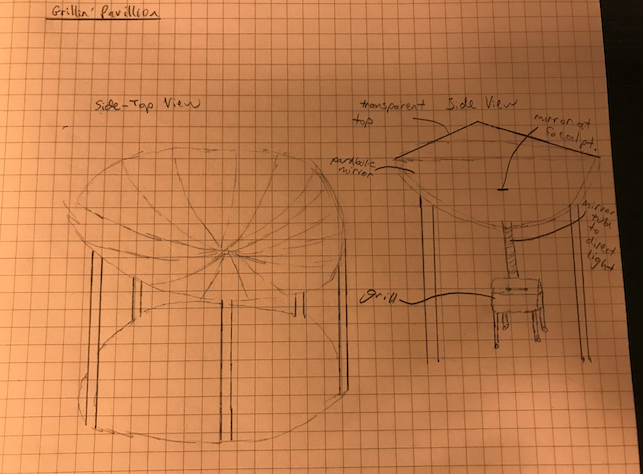 Grillin' Pavillion
Side-Top View
Side View
transparent
top
mirror at
focal pt.
parabolic
mirror
mirror
tube
to
direct
light
Grill